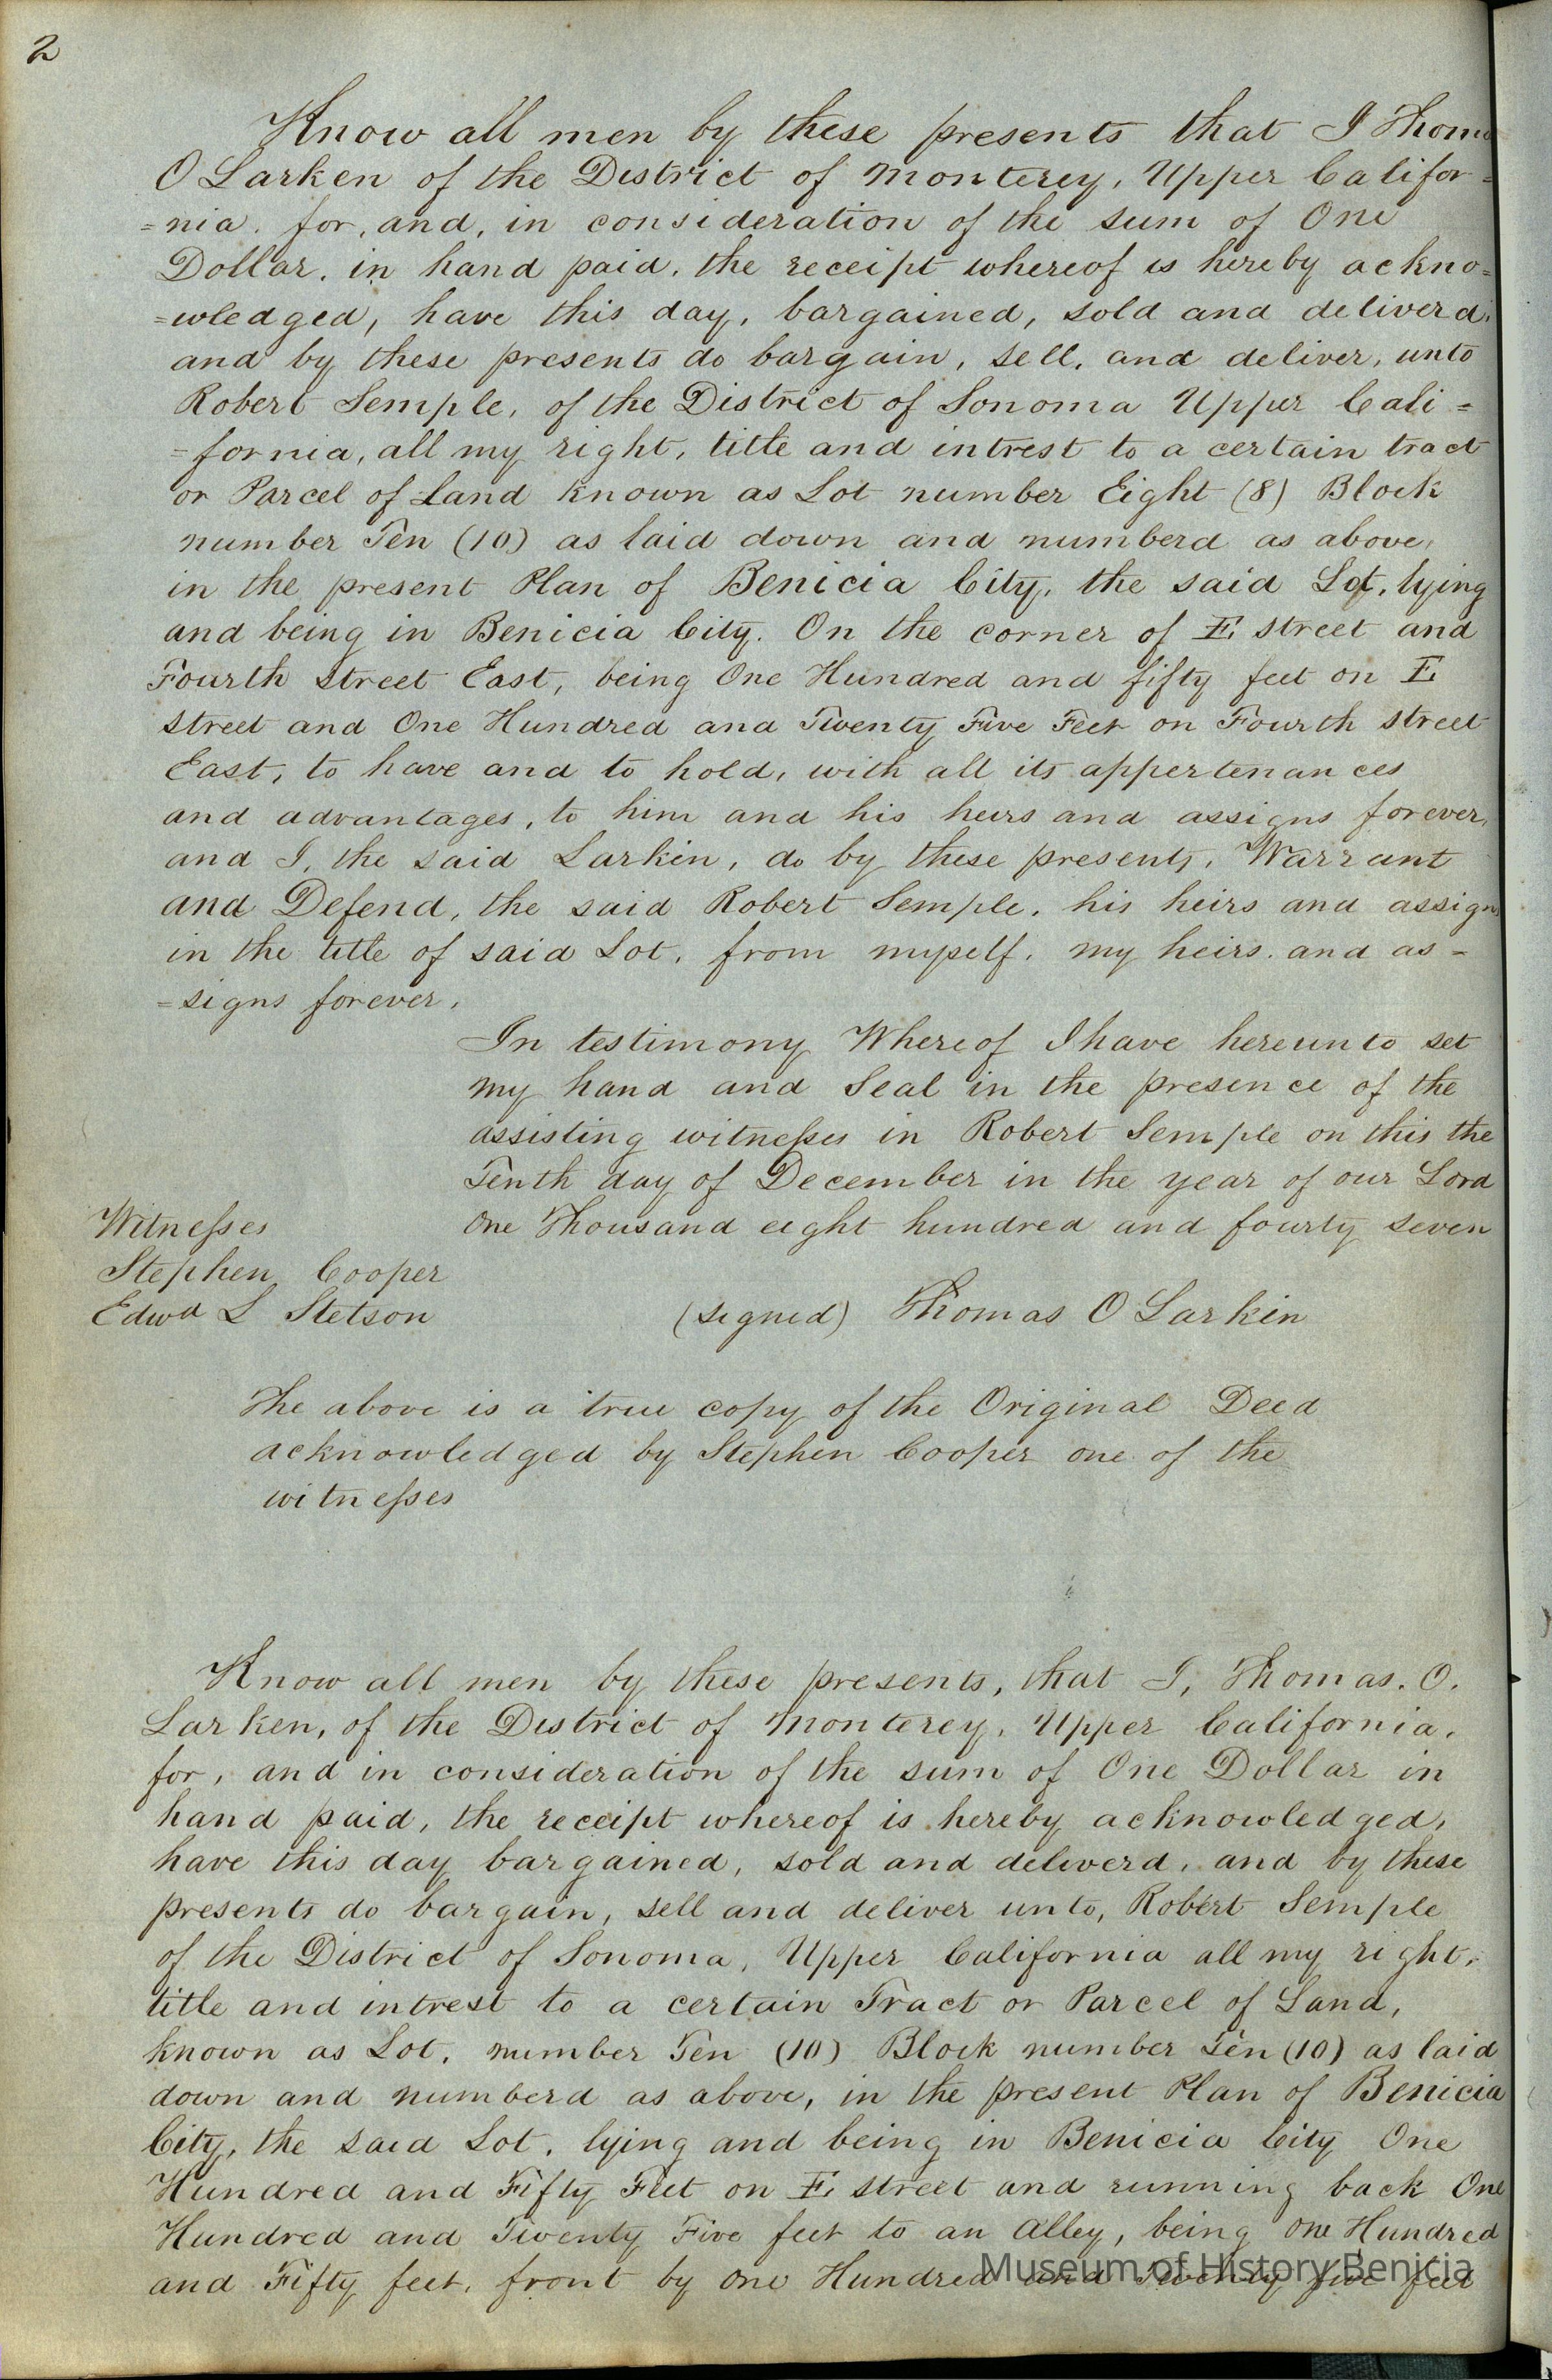 2
Know all men by these presents that I Thomas
O Larken of the District of Monterey, Upper Califor=
=nia. for, and, in consideration of the sum of One
Dollar. in hand paid, the receipt whereof is hereby ackno=
=wledged, have this day, bargained, sold and deliverd,
and by these presents do bargain, sell, and deliver, unto
Robert Semple, of the District of Sonoma Upper Cali=
=fornia, all my right, title and intrest to a certain tract
or Parcel of Land known as Lot number Eight (8) Block
number Ten (10) as laid down and numberd as above,
in the present Plan of Benicia City, the said Lot, lying
and being in Benicia City. On the corner of E street and
Fourth street East, being One Hundred and fifty feet on E
street and One Hundred and Twenty Five Feet on Fourth street
East, to have and to hold, with all its appertenances
and advantages, to him and his heirs and assigns forever,
and I, the said Larkin, do by these presents, Warrant
and Defend, the said Robert Semple, his heirs and assigns
in the title of said Lot, from myself, my heirs. and as=
=signs forever.
In testimony Whereof I have hereunto set
my hand and Seal in the presence of the
assisting witnesses in Robert Semple on this the
Tenth day of December in the year of our Lord
One Thousand eight hundred and fourty seven
Witnesses
Stephen Cooper
Edwd L Stetson
(signed) Thomas O Larkin
The above is a true copy of the Original Deed
acknowledged by Stephen Cooper one of the
witnesses
Know all men by these presents, that I, Thomas. O.
Larken, of the District of Monterey, Upper California,
for, and in consideration of the sum of One Dollar in
hand paid, the receipt whereof is hereby acknowledged,
have this day bargained, sold and deliverd, and by these
presents do bargain, sell and deliver unto, Robert Semple
of the District of Sonoma, Upper California all my right,
title and intrest to a certain Tract or Parcel of Land,
known as Lot, number Ten (10) Block number Ten (10) as laid
down and numberd as above, in the present Plan of Benicia
City, the said Lot, lying and being in Benicia City One
Hundred and Fifty Feet on E street and running back One
Hundred and Twenty Five feet to an Alley, being One Hundred
and Fifty feet, front by One Hundred and Twenty five feet
Museum of History Benicia